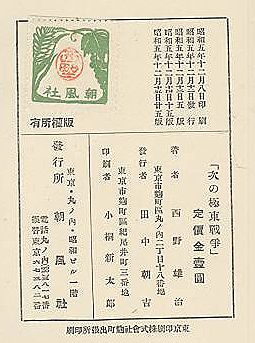 昭和五年十二月八日印刷
昭和五年十二月十二日發行
昭和五年十二月十二日五版
昭和五年十二月十五日十五版
昭和五年十二月廿二日廿五版
朝風社
版權所有
「次の極東戰爭」
定價金壹圓
著者 西野雄治
東京市麴町區丸ノ内二丁目十八番地
發行者 田中朝吉
東京市麴町區紀尾井町三番地
印刷者 小桐新太郎
東京・丸ノ内・昭和ビル一階
發行所 朝風社
電話丸ノ内
振替東京
東京印刷株式會社麴町出張所印刷